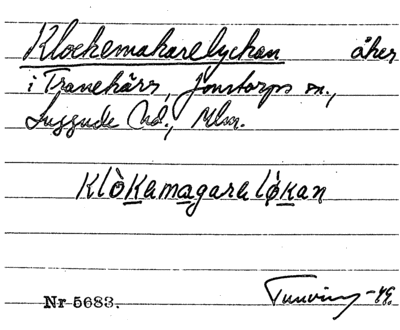 Klockemakarelyckan åker
i Tranekärr, Jonstorps sn.,
Luggude hd., Mlm.
Klòkamagaralỳkan
Nr 5683. -49.